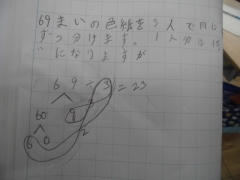 69まいの色紙を3人で同じ
ずつ分けます。1人分は
になりますか
6 9 ÷ 3 = 23
60 9
6 0 2